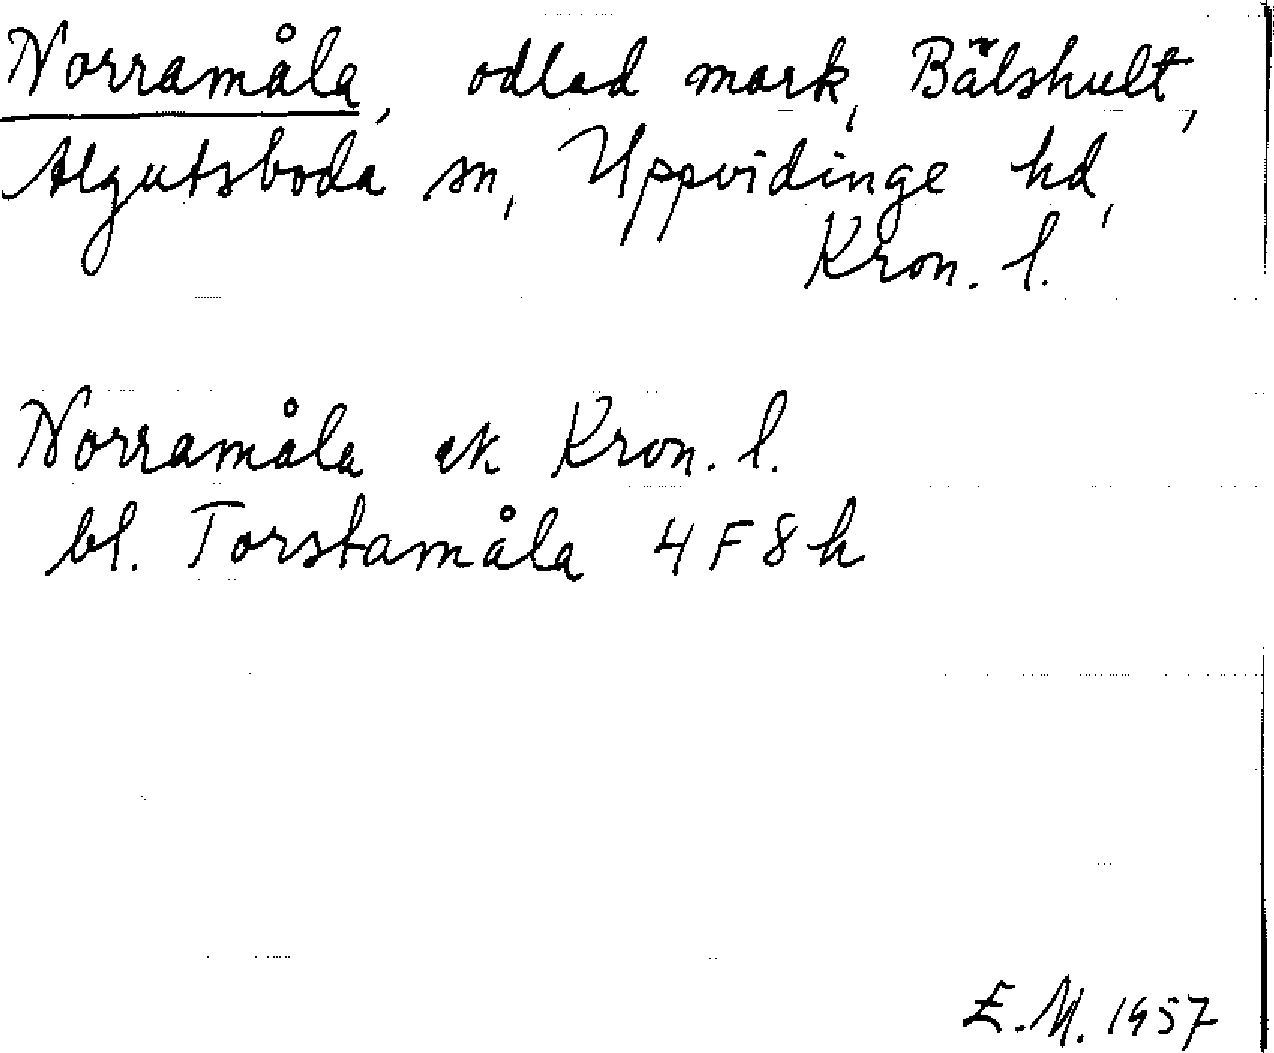 Norramåla, odlad mark, Bälshult,
Algutsboda sn, Uppvidinge hd,
Kron. l.
Norramåla ek Kron. l.
bl. Torstamåla 4F8h
E.M. 1957